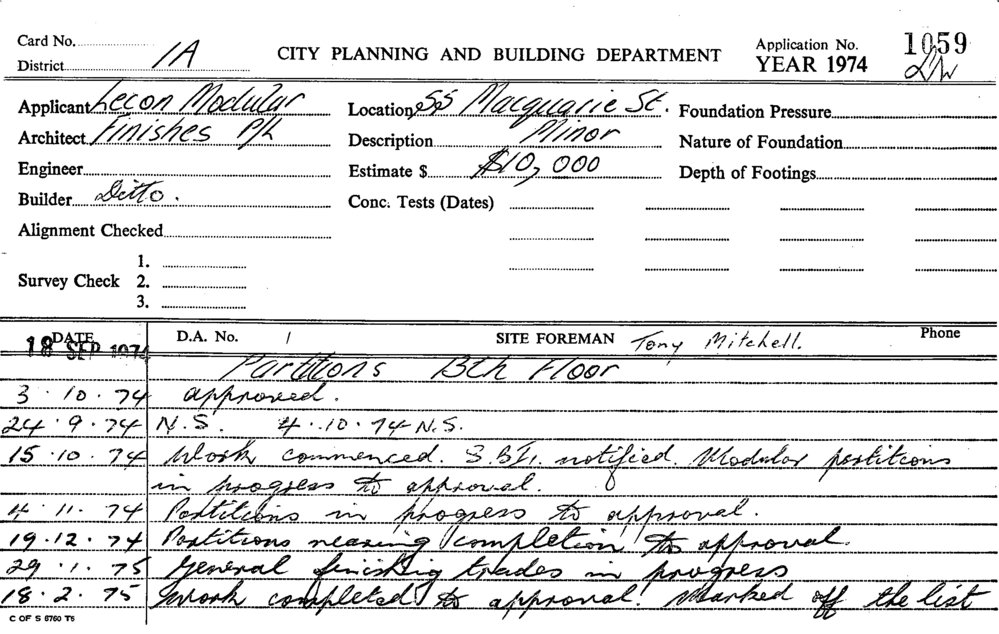 Card No.
District 1A
CITY PLANNING AND BUILDING DEPARTMENT
Application No. 1059
YEAR 1974
Applicant Lecon Modular
Architect Finishes P/L
Engineer
Builder Ditto.
Alignment Checked
Survey Check 1.
2.
3.
Location 55 Macquarie St.
Description Minor
Estimate $ $10,000
Conc. Tests (Dates)
Foundation Pressure
Nature of Foundation
Depth of Footings
DATE D.A. No. / SITE FOREMAN Tony Mitchell. Phone
18 SEP 1974
Partitions 13th Floor
3.10.74 approved.
24.9.74 N.S. 4.10.74 N.S.
15.10.74 Work commenced. notified. Modular partitions
in progress to approval.
4.11.74 Partitions in progress to approval.
19.12.74 Partitions nearing completion to approval.
29.1.75 General finishing trades in progress
18.2.75 Work completed to approval. Marked off the list
C OF S 6760 T5